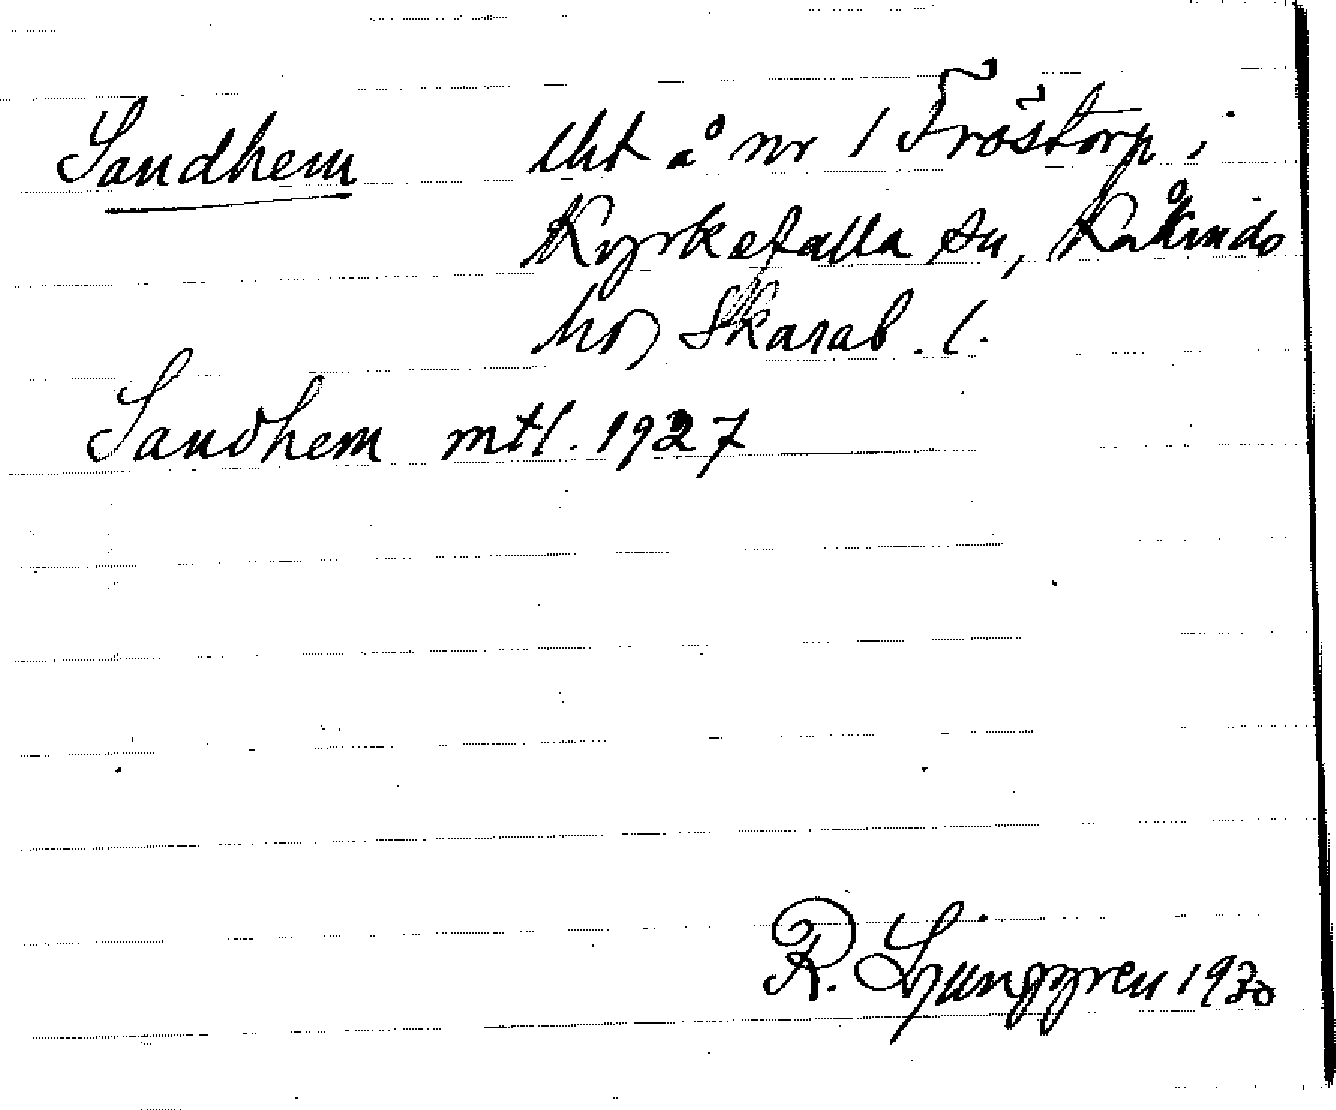 Sandhem lht å nr 1 Fröstorp i
Kyrkefalla sn, Kåkinds
hd Skarab. l.
Sandhem mtl. 1927
R. Ljunggren 1930